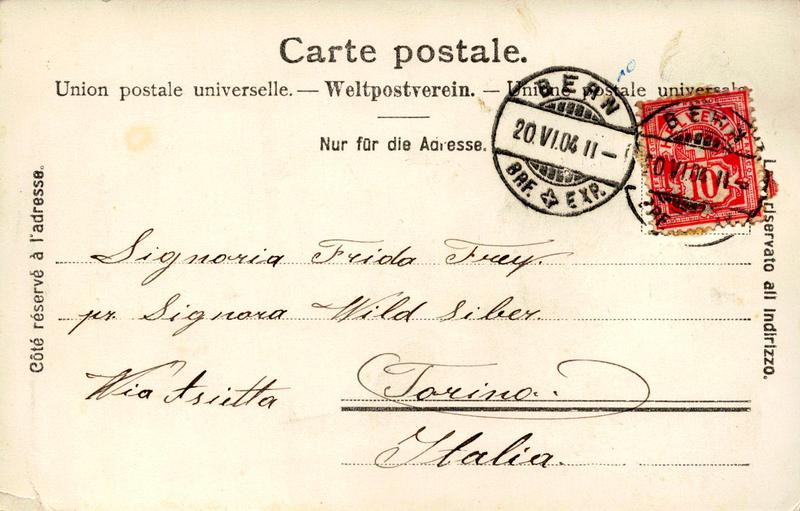 Carte postale.
Union postale universelle. — Weltpostverein. — Unione postale universale
Nur für die Adresse.
BERN
20.VI.04 11–
BRF. EXP.
BERN
HELVETIA
10
20.VI.04 11
Côté réservé à l'adresse.
riservato all indirizzo.
Signoria Frida Frey.
pr. Signora Wild Siber.
Via Assietta Torino.
Italia.